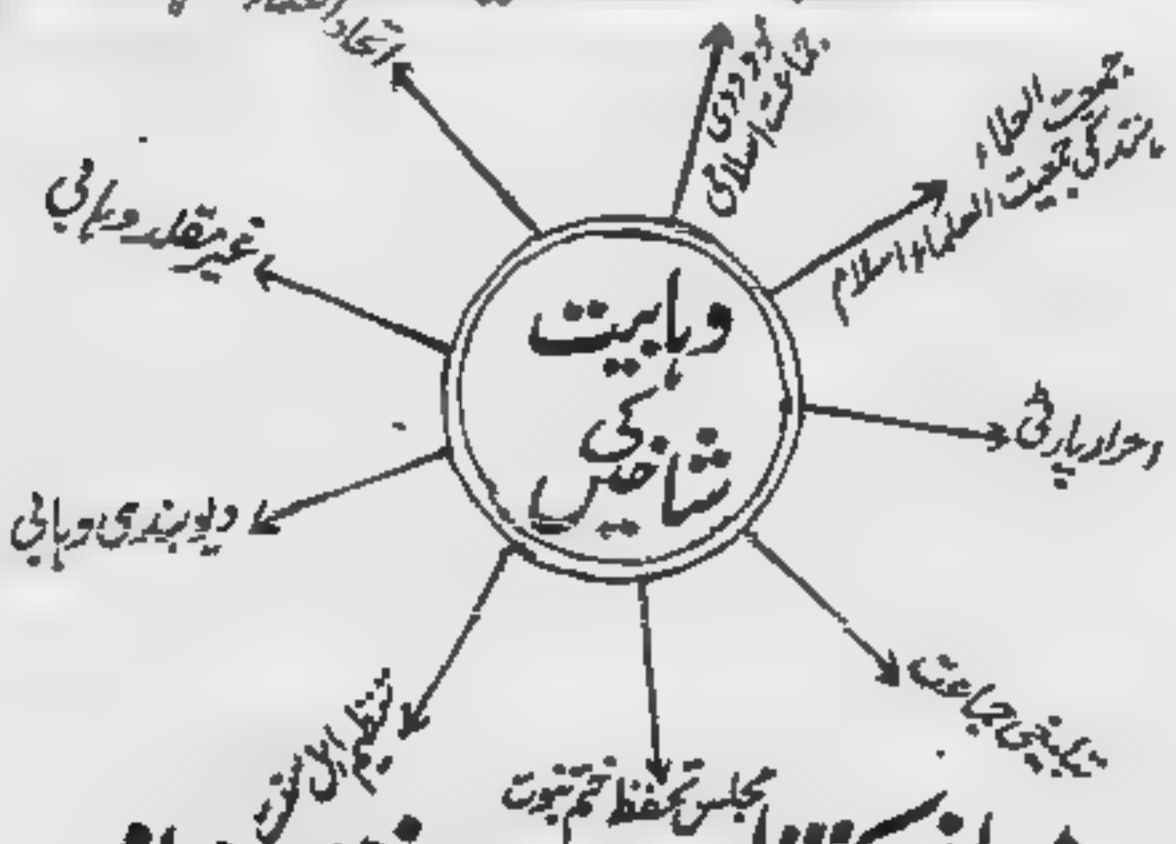 وہابیت
کی
شاخیں
مودودی
جماعت اسلامی
جمعیت العلماء
مانند کی جمعیت العلماء اسلام
احرار پارٹی
تبلیغی جماعت
مجلس تحفظ ختم نبوت
تنظیم
دیوبندی وہابی
غیر مقلد وہابی
اتحاد